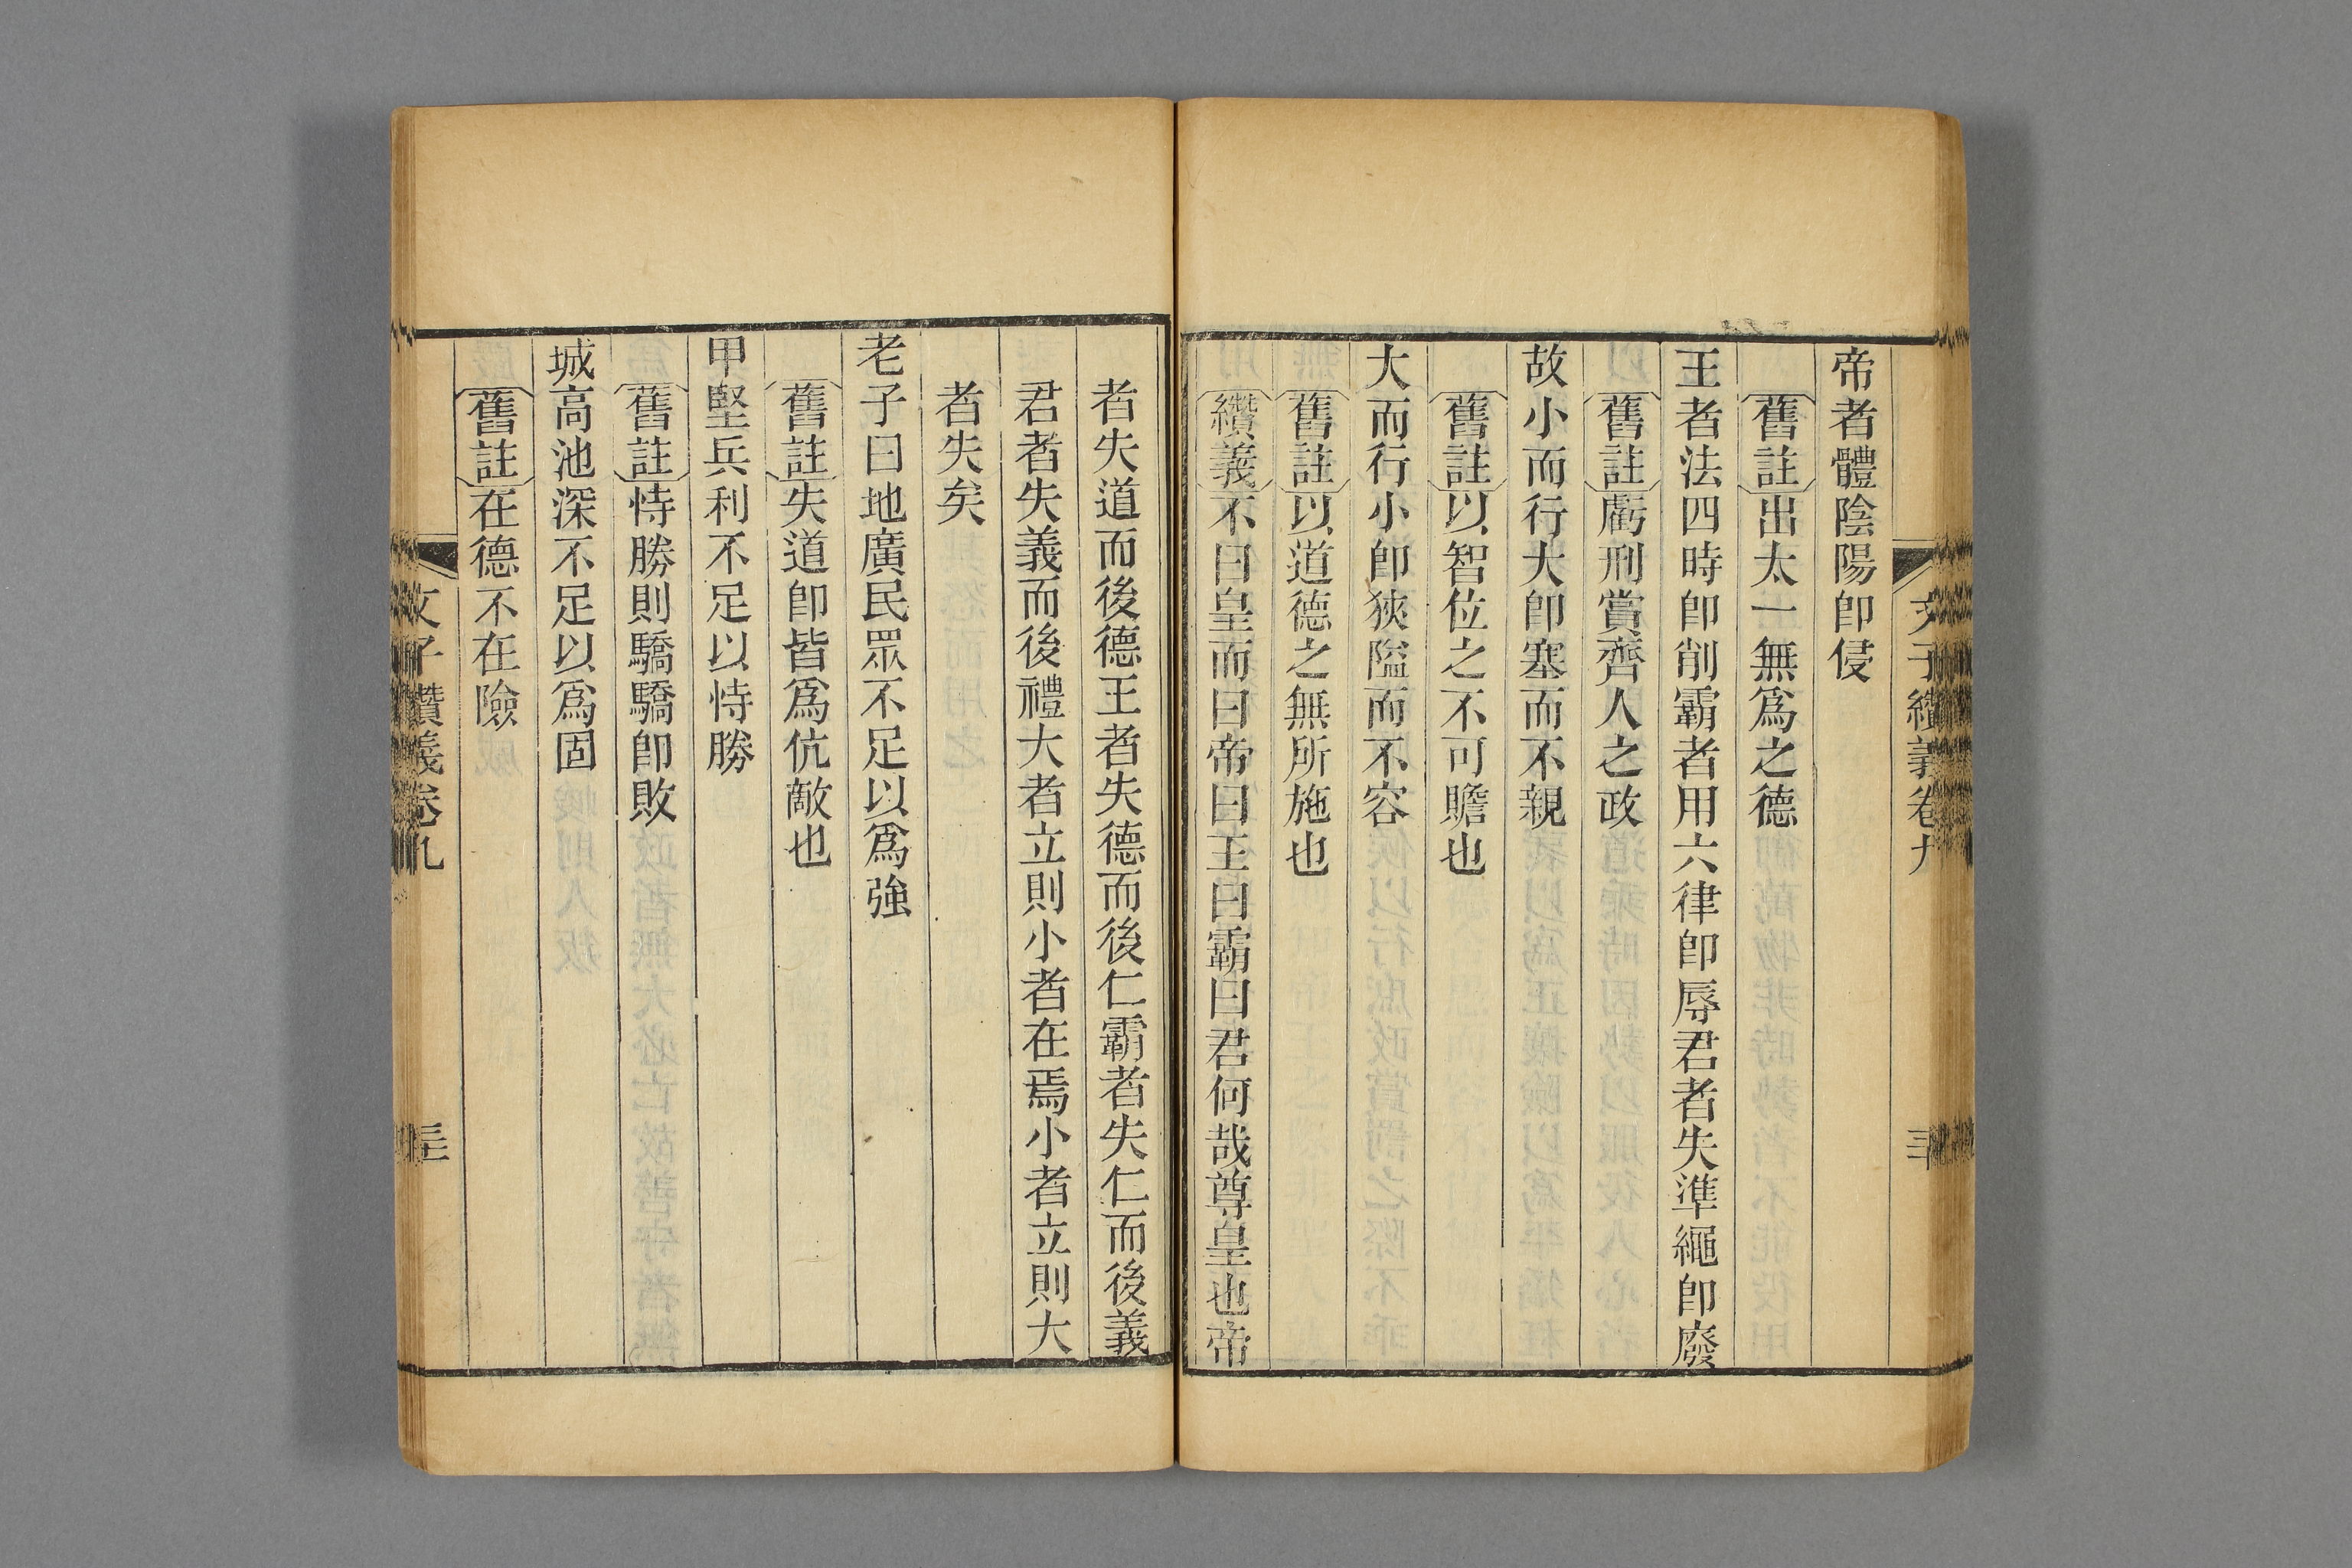 文子纘義卷九
帝者體陰陽卽侵
舊註出太一無爲之德
王者法四時卽削霸者用六律卽辱君者失準繩卽廢
舊註虧刑賞齊人之政
故小而行大卽塞而不親
舊註以智位之不可贍也
大而行小卽狹隘而不容
舊註以道德之無所施也
纘義不曰皇而曰帝曰王曰霸曰君何哉尊皇也帝
者失道而後德王者失德而後仁霸者失仁而後義
君者失義而後禮大者立則小者在焉小者立則大
者失矣
老子曰地廣民眾不足以爲強
舊註失道卽皆爲伉敵也
甲堅兵利不足以恃勝
舊註恃勝則驕驕卽敗
城高池深不足以爲固
舊註在德不在險
文子纘義卷九